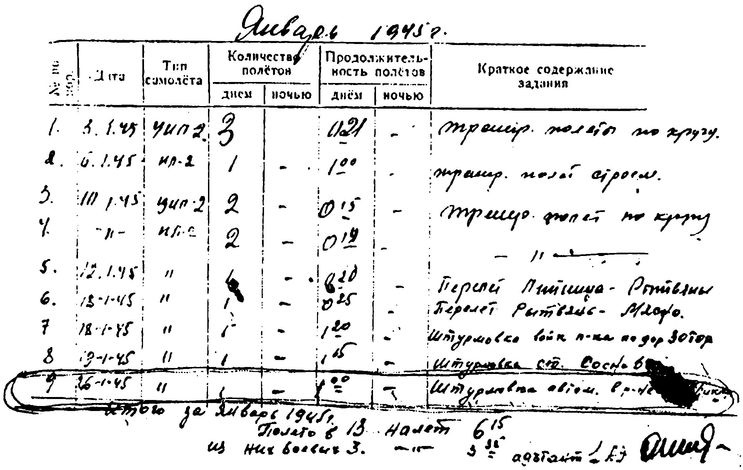 Январь 1945г.
№ по пор. Дата Тип самолёта Количество полётов Продолжительность полётов Краткое содержание задания
днем ночью днём ночью
1. 3.1.45 УИЛ-2 3 0 21 - тренир. полеты по кругу.
2. 6.1.45 ИЛ-2 1 - 1 00 - тренир. полет строем.
3. 10.1.45 УИЛ-2 2 - 0 15 - тренир. полет по кругу
4. -"- ИЛ-2 2 - 0 14 - - " -
5. 12.1.45 " - - Перелет
6. 13-1-45 " 1 - 0 25 - Перелет
7 18-1-45 " 1 - 1 20 - Штурмовка войск п-ка по дор
8 19-1-45 " 1 - 1 15 - Штурмовка ст.
9 26-1-45 " 1 - 1 00 - Штурмовка автом.
Итого за Январь 1945г.
Полетов 13 Налет 6 15
из них боевых 3. -"- 3 35 адъютант